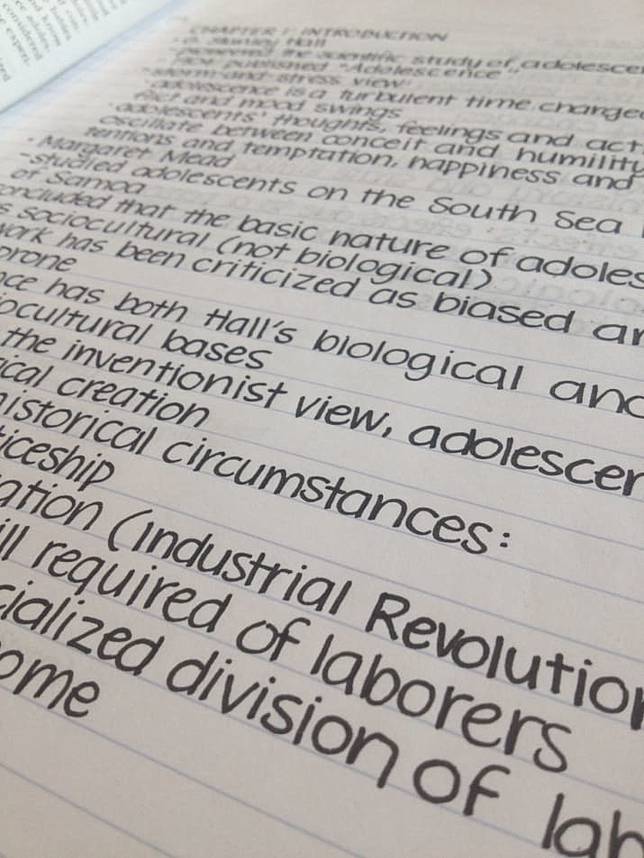 CHAPTER 1: INTRODUCTION
Stanley Hall
the scientific study of adolesce
published "Adolescence"
storm-and-stress view:
adolescence is a turbulent time charge
flict and mood swings
adolescents' thoughts, feelings and act
oscillate between conceit and humility
tentions and temptation, happiness and
· Margaret Mead
-studied adolescents on the South Sea
of Samoa
oncluded that the basic nature of adoles
s sociocultural (not biological)
work has been criticized as biased ar
prone
nce has both Hall's biological and
iocultural bases
the inventionist view, adolescer
ical creation
historical circumstances:
ticeship
ation (Industrial Revolution
ill required of laborers
cialized division of lab
ome